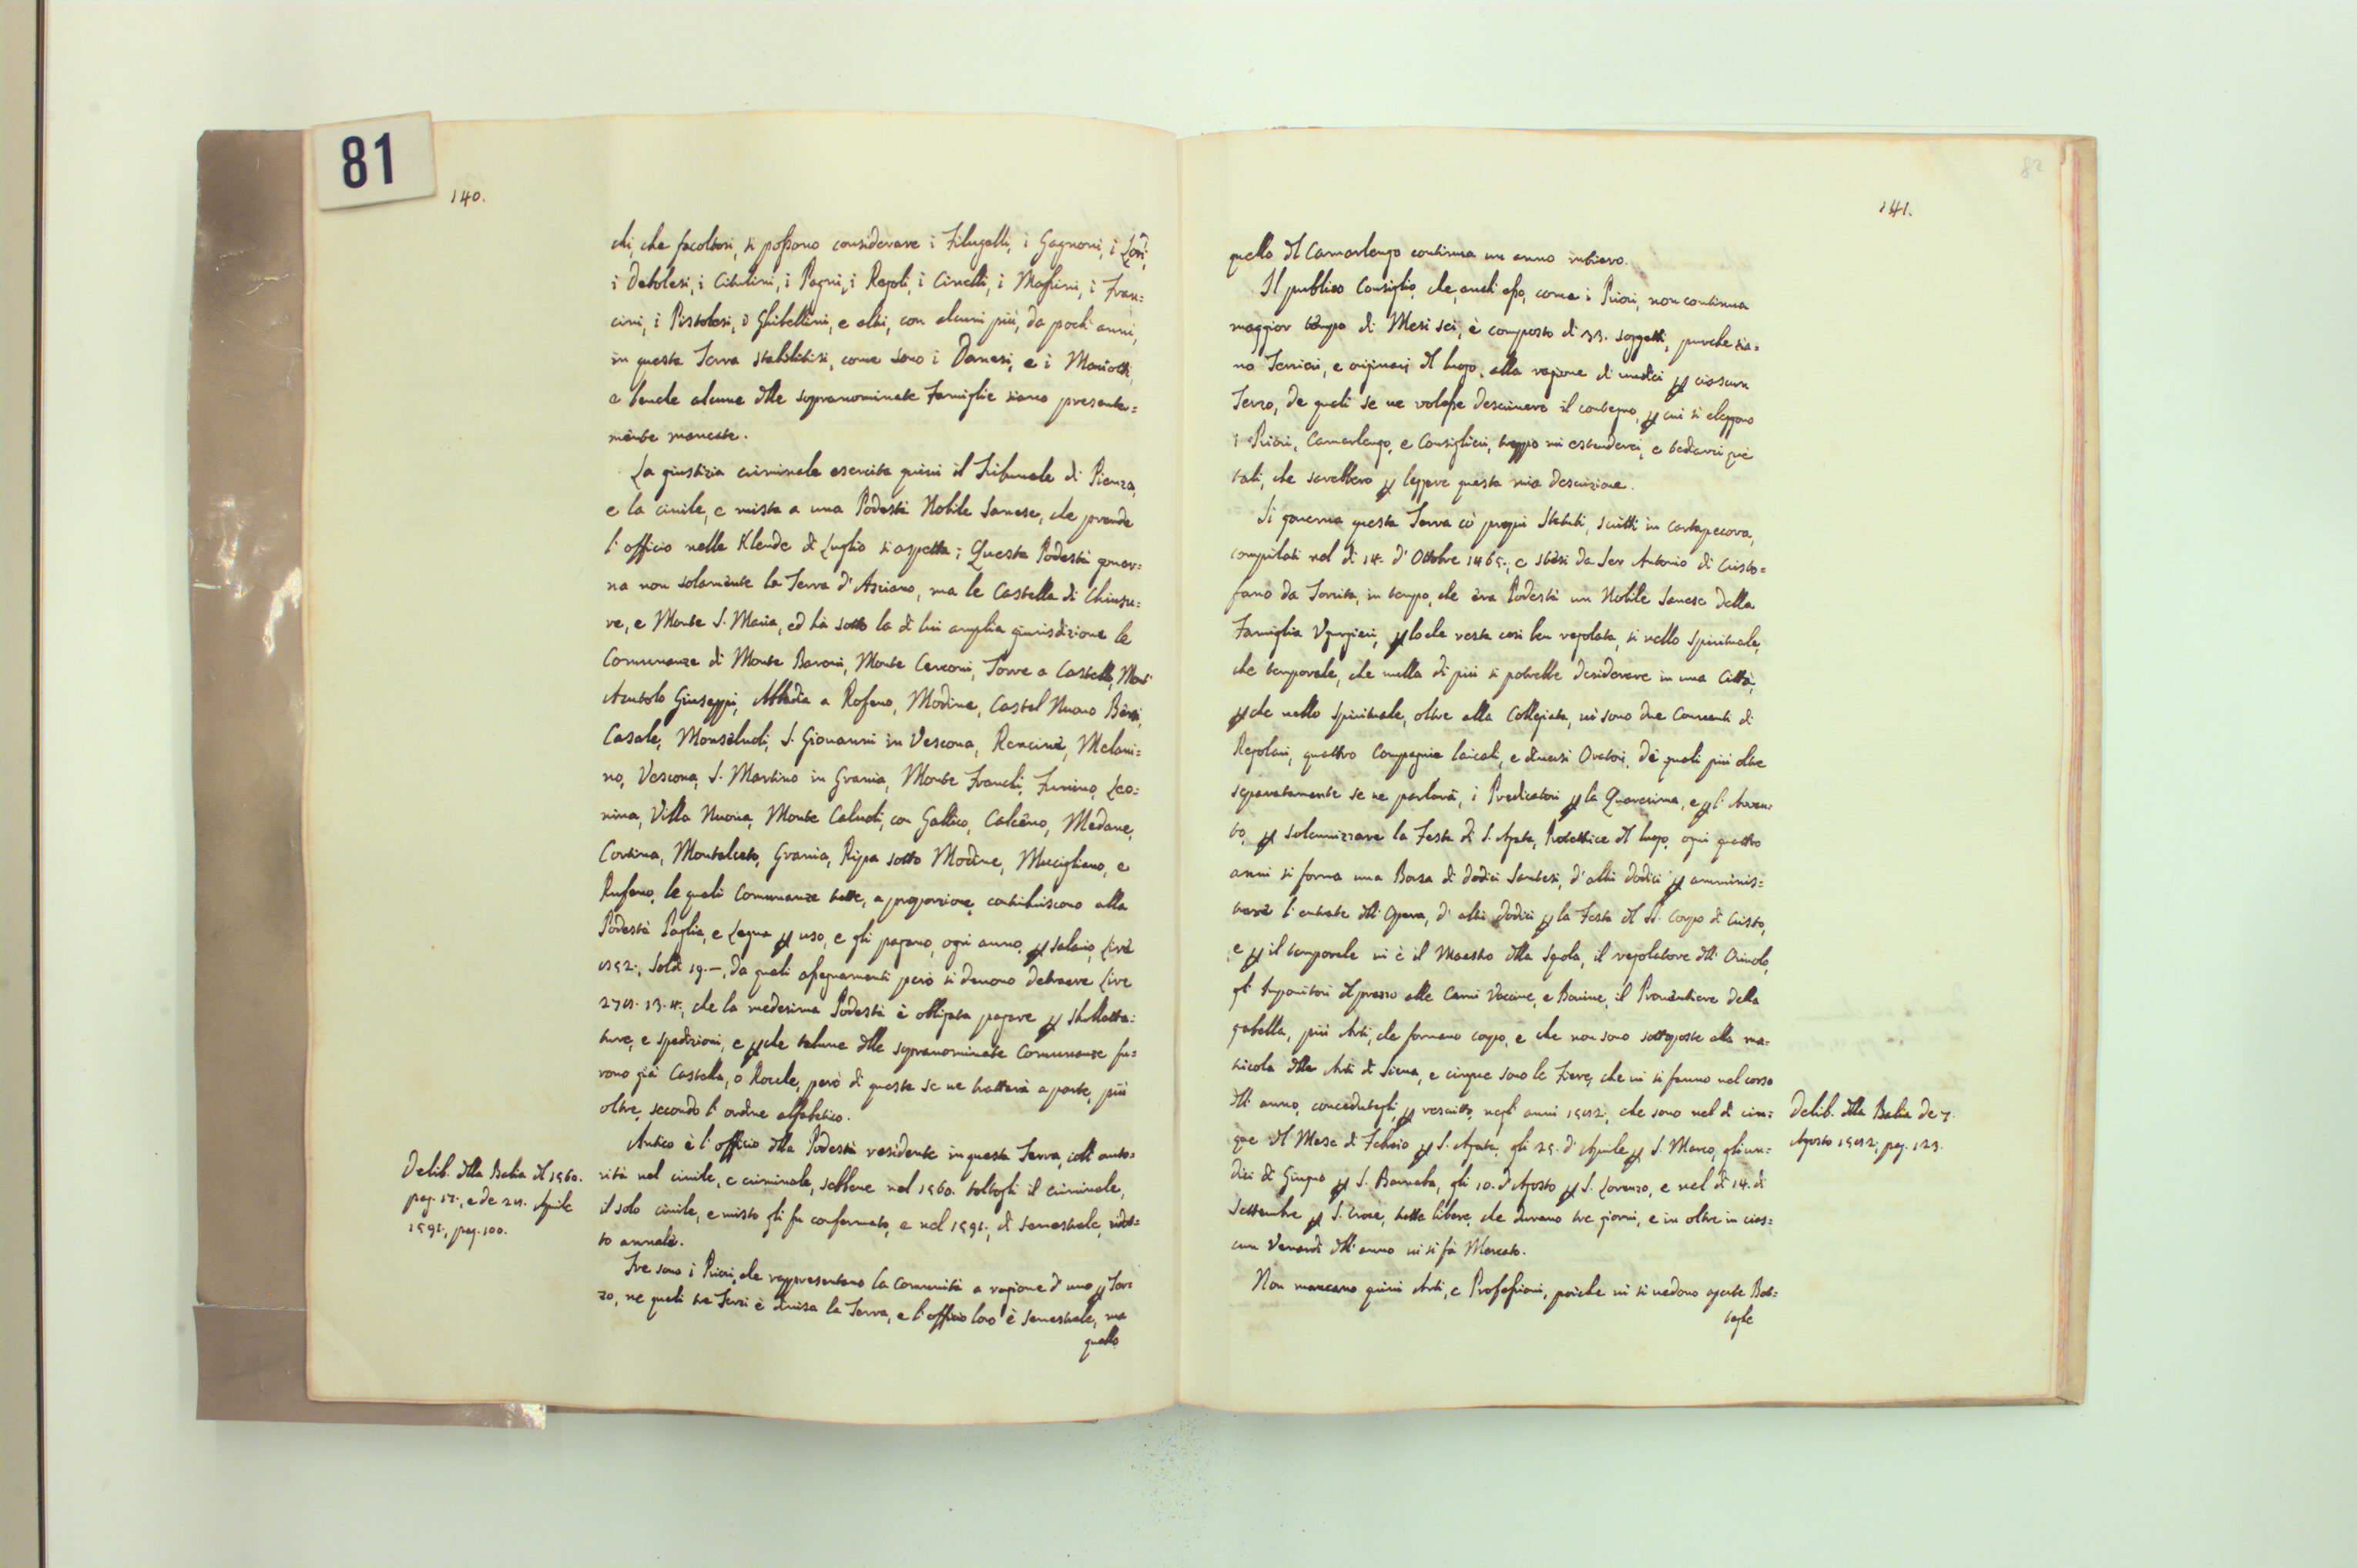 81
140.
chi, che facoltosi, si possono considerare i Filugelli, i Gagnoni, i Lori,
i Debolesi, i Citulini, i Pagni, i Regoli, i Cinelli, i Massini, i Fran=
cini, i Pistolesi, i Ghibellini, e altri, con alcuni più, da pochi anni,
in questa Terra stabilitisi, come sono i Danesi, e i Mariotti,
e benche alcune dlle sopranominate Famiglie siano presente=
mente mancate.
La giustizia criminale esercita quivi il Tribunale di Pienza,
e la civile, e mista a una Podestà Nobile Sanese, che prende
l'officio nelle Klende di Luglio si aspetta; Questa Podestà gover=
na non solamente la Terra d'Asciano, ma le Castella di Chiusu=
re, e Monte S. Maria, ed hà sotto la di lui amplia giurisdizione le
Comunanze di Monte Baroni, Monte Cerconi, Torre a Castello, Mont'
Auutolo Giuseppi, Abbadia a Rofeno, Modine, Castel Nuovo Bersi,
Casale, Monselvoli, S. Giovanni in Vescona, Rencine, Melani=
no, Vescona, S. Martino in Grania, Monte Franchi, Fumino, Leo=
nina, Villa Nuova, Monte Caluoli, con Gallico, Calceno, Medane,
Cortina, Montalceto, Grania, Ripa sotto Modine, Mucigliano, e
Rufeno, le quali Comunanze tutte, a proporzione, contribuiscono alla
Podestà Paglia, e Legna p uso, e gli pagano, ogni anno, p salario, Lire
Soldi 19.—, da quali assegnamenti però si devono detraere Lire
13. 4., che la medesima Podestà è obbligata pagare p
ture, e spedizioni, e pche talune dlle sopranominate Comunanze fu=
rono già Castella, o Rocche, però di queste se ne tratterà a parte, più
oltre, secondo l'ordine alfabetico.
Antico è l'officio dlla Podestà residente in questa Terra, coll'auto=
rità nel civile, e criminale, sebbene nel 1560. toltogli il criminale,
il solo civile, e misto gli fu confermato, e nel 1591., di semestrale, ridot=
to annale.
Tre sono i Priori, che rappresentano la Comunità a ragione d'uno p Ter=
zo, ne quali tre Terzi è divisa la Terra, e l'officio loro è semestrale, ma
quello
Delib. dlla Balia dl 1560.
pag. 17., e de 24. Aprile
1591., pag. 100.
82
141.
quello dl Camarlengo continua un anno intiero.
Il publico Consiglio, che, anch'esso, come i Priori, non continua
maggior tempo di Mesi sei, è composto di 33. soggetti, purche sia=
no Terrieri, e originarj dl luogo, alla ragione di undici p ciascun
Terzo, de quali se ne volesse descrivere il contegno, p cui si eleggono
i Priori, Camarlengo, e Consiglieri, troppo mi estenderei, e tediarei què
tali, che sarebbero p leggere questa mia descrizione.
Si governa questa Terra cò proprj Statuti, scritti in cartapecora,
compilati nel di 14. d'Ottobre 1465., e stèsi da Ser Antonio di Cristo=
fano da Torrita, in tempo, che èra Podestà un Nobile Sanese della
Famiglia Ugurgieri, p loche resta così ben regolata, sì nello Spirituale,
che temporale, che nulla di più si potrebbe desiderare in una Città,
pche nello Spirituale, oltre alla Collegiata, vi sono due Conventi di
Regolari, quattro Compagnie laicali, e diversi Oratorj, dè quali più oltre
separatamente se ne parlarà, i Predicatori p la Quaresima, e p l'Avven=
to, p solennizzare la Festa di S. Agata, Protettrice dl luogo, ogni quattro
anni si forma una Borsa di dodici Santesi, d'altri dodici p amminis=
trare l'entrate dll'Opera, d'altri dodici p la Festa dl SS. Corpo di Cristo,
e p il temporale vi è il Maestro dlla Scola, il regolatore dll'Oriuolo,
gl'Imponitori dl prezzo alle Carni Vaccine, e Bovine, il Proventiere della
gabella, più Arti, che formano corpo, e che non sono sottoposte alla ma=
tricola dlle Arti di Siena, e cinque sono le Fiere, che vi si fanno nel corso
dll'anno, concedutegli, p rescritto, negli anni 1542., che sono nel di cin=
que dl Mese di Febraio p S. Agata, gli 25. d'Aprile p S. Marco, gli un=
dici di Giugno p S. Barnaba, gli 10. d'Agosto p S. Lorenzo, e nel di 14. di
Settembre p S. Croce, tutte libere, che durano tre giorni, e in oltre in cias=
cun Venardì dll'anno vi si fà Mercato.
Non mancano quivi Arti, e Professioni, poiche vi si vedono aperte Bot=
teghe
Delib. dlla Balia de 7.
Agosto 1542., pag. 123.